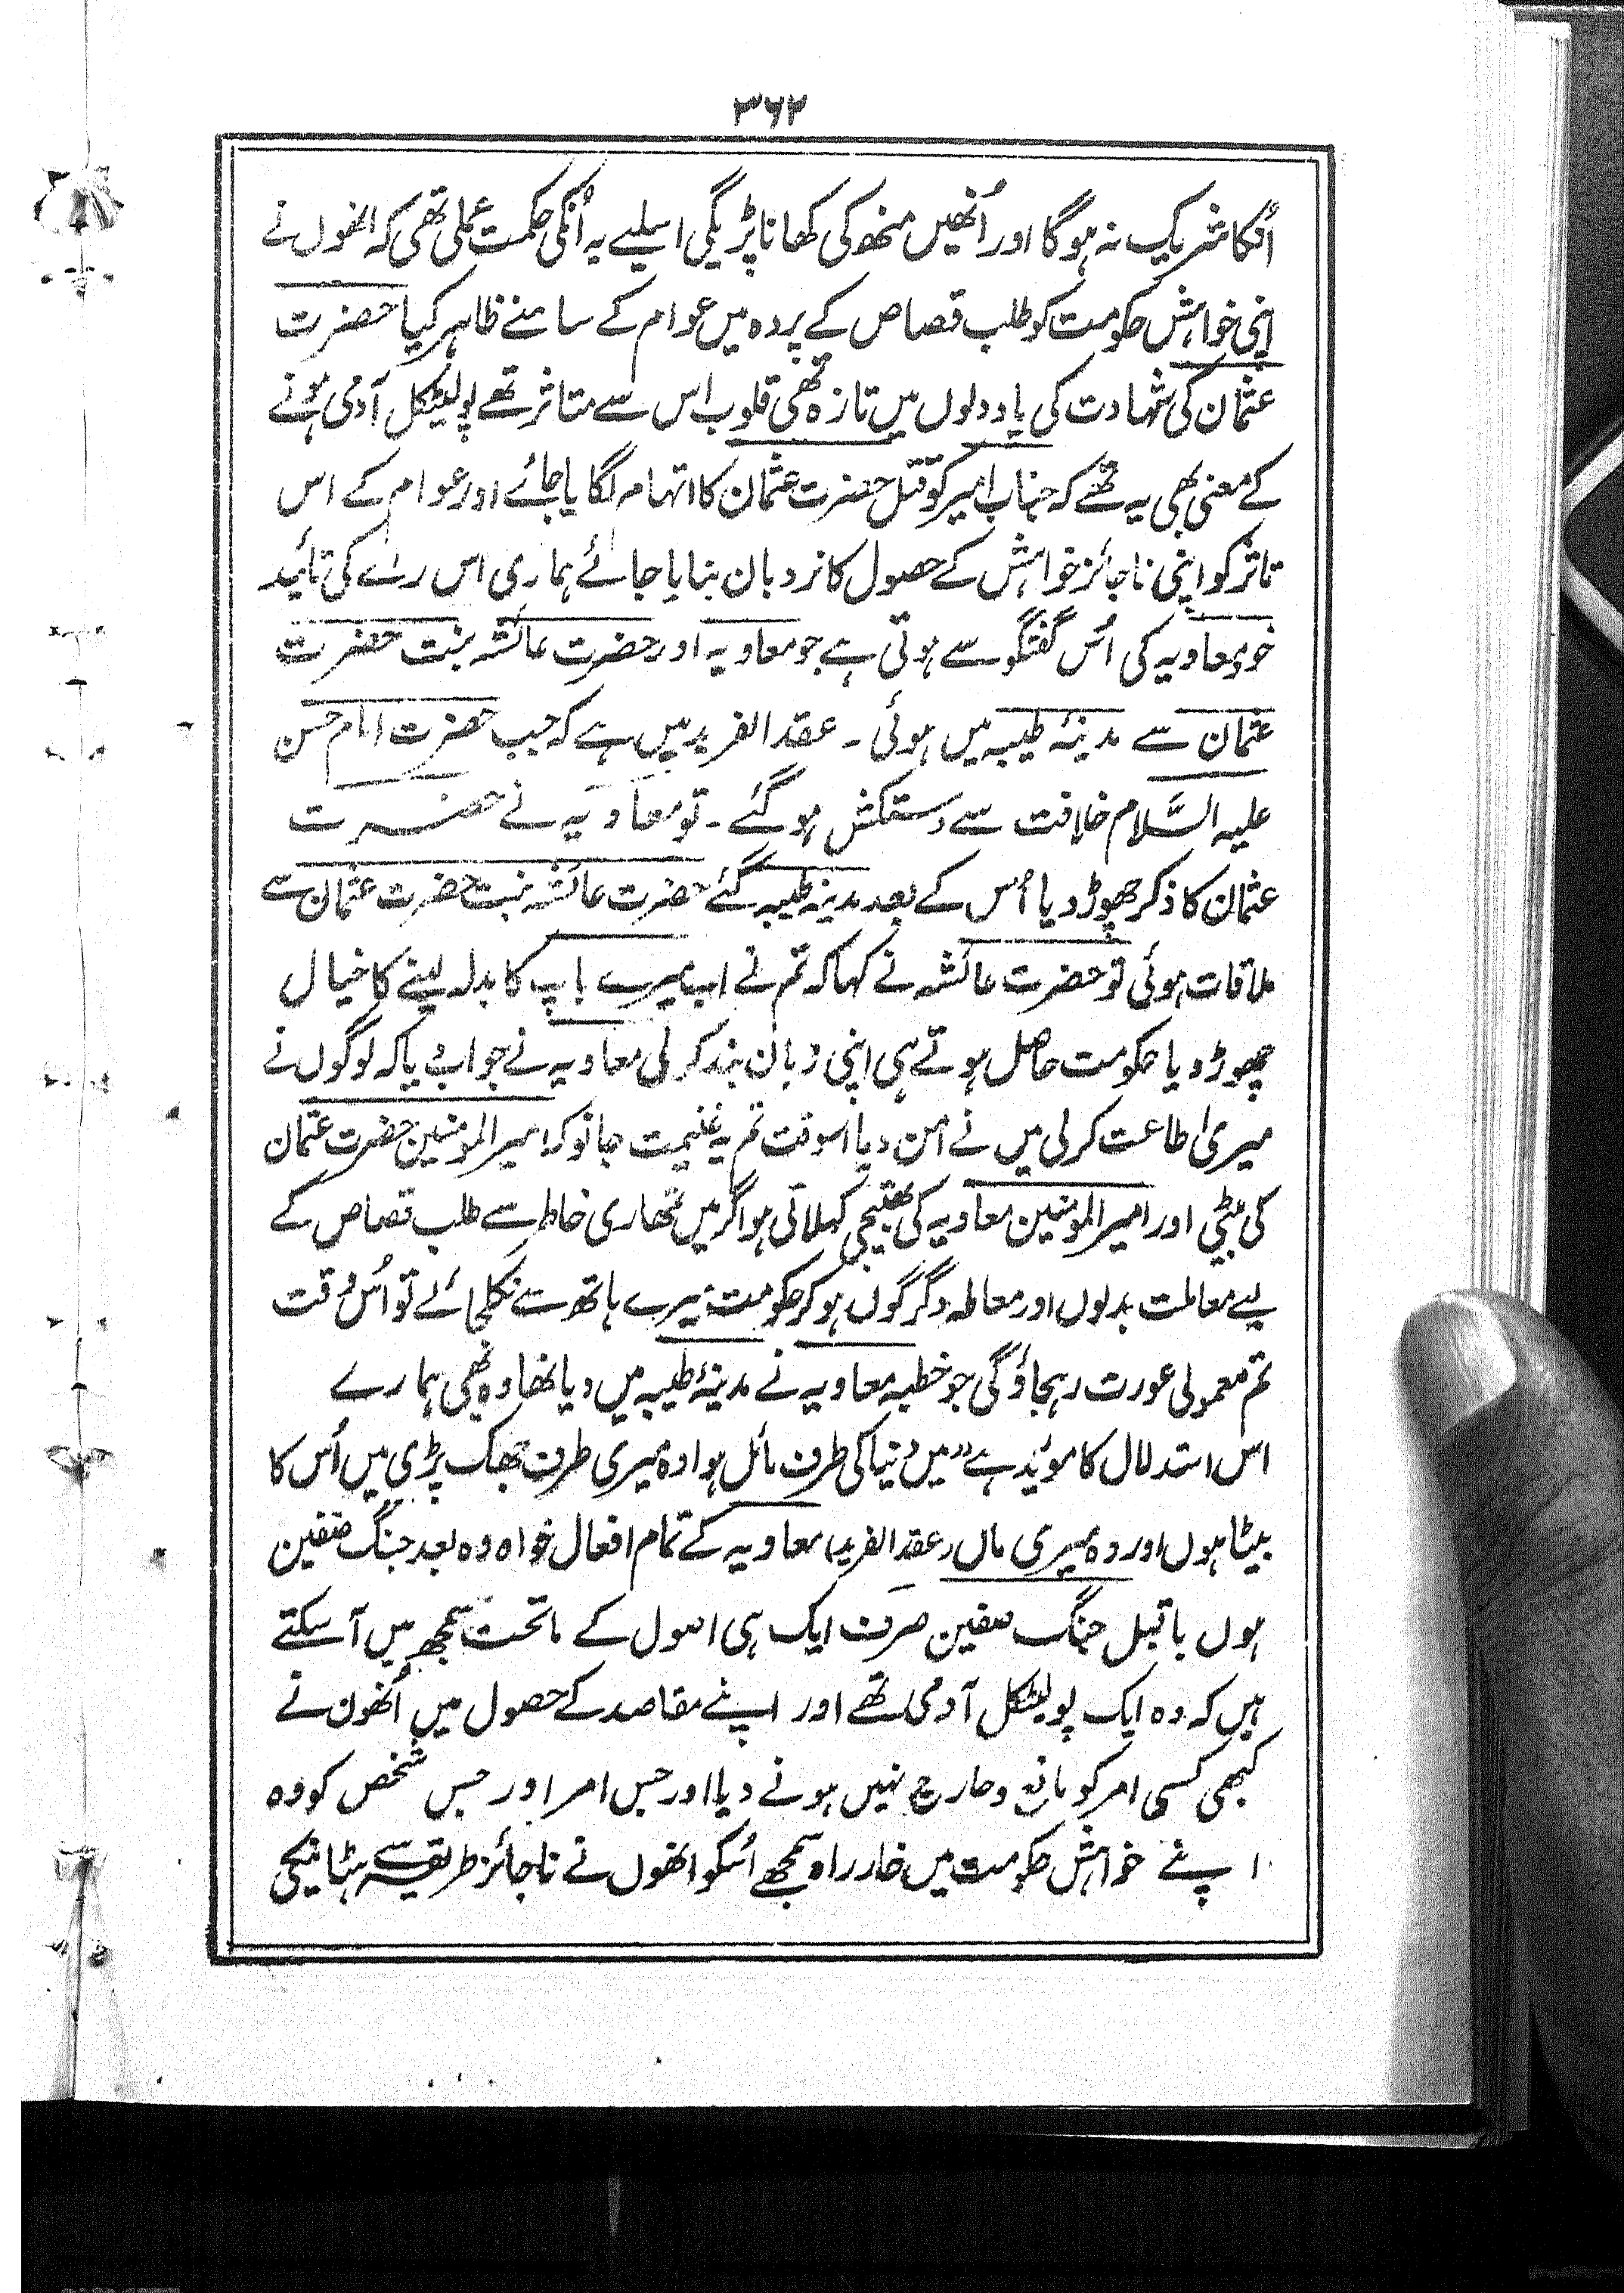 ۳۶۲
اُنکا شریک نہ ہوگا اور اُنھیں منھ کی کھانا پڑیگی اسلیے یہ اُنکی حکمت عملی تھی کہ انھوں نے
اپنی خواہش حکومت کو طلب قصاص کے پردہ میں عوام کے سامنے ظاہر کیا حضرت
عثمان کی شہادت کی یاد دلوں میں تازہ تھی قلوب اس سے متاثر تھے پولیٹکل آدمی ہونے
کے معنی بھی یہ تھے کہ جناب امیر کو قتل حضرت عثمان کا اتہام لگایا جائے اور عوام کے اس
تاثر کو اپنی ناجائز خواہش کے حصول کا نردبان بنایا جائے ہماری اس راے کی تائید
خود معاویہ کی اُس گفتگو سے ہوتی ہے جو معاویہ اور حضرت عائشہ بنت حضرت
عثمان سے مدینۂ طیبہ میں ہوئی ۔ عقد الفرید میں ہے کہ جب حضرت امام حسن
علیہ السَّلام خلافت سے دستکش ہو گئے ۔ تو معاویہ نے حضرت
عثمان کا ذکر چھوڑ دیا اُس کے بعد مدینہ طیبہ گئے حضرت عائشہ بنت حضرت عثمان سے
ملاقات ہوئی تو حضرت عائشہ نے کہا کہ تم نے اب میرے باپ کا بدلہ لینے کا خیال
چھوڑ دیا حکومت حاصل ہوتے ہی اپنی زبان بند کر لی معاویہ نے جواب دیا کہ لوگوں نے
میری اطاعت کر لی میں نے امن دیا اسوقت تم یہ غنیمت جانو کہ امیر المومنین حضرت عثمان
کی بیٹی اور امیر المومنین معاویہ کی بھتیجی کہلاتی ہو اگر میں تمھاری خاطر سے طلب قصاص کے
لیے معاملت بدلوں اور معاملہ دگرگوں ہو کر حکومت میرے ہاتھ سے نکلجائے تو اُس وقت
تم معمولی عورت رہجاؤگی جو خطبہ معاویہ نے مدینۂ طیبہ میں دیا تھا وہ بھی ہمارے
اس استدلال کا موئید ہے "میں دنیا کی طرف مائل ہوا وہ میری طرف جھک پڑی میں اُس کا
بیٹا ہوں اور وہ میری ماں (عقد الفرید) معاویہ کے تمام افعال خواہ وہ بعد جنگ صفین
ہوں یا قبل جنگ صفین صرف ایک ہی اصول کے ماتحت سمجھ میں آ سکتے
ہیں کہ وہ ایک پولیٹکل آدمی تھے اور اپنے مقاصد کے حصول میں اُنھون نے
کبھی کسی امر کو مانع و حارج نہیں ہونے دیا اور جس امر اور جس شخص کو وہ
اپنے خواہش حکومت میں خار راہ سمجھے اُسکو انھوں نے ناجائز طریقہ سے ہٹانیکی